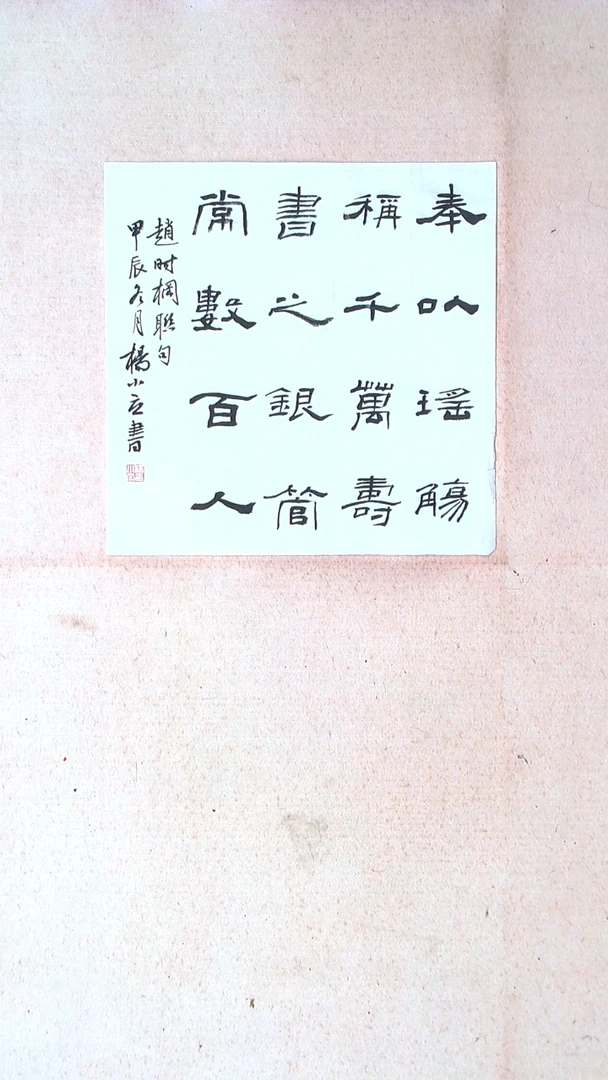 奉以瑶觴
稱千萬壽
書之銀管
常數百人
趙时棡聯句
甲辰冬月楊小立書